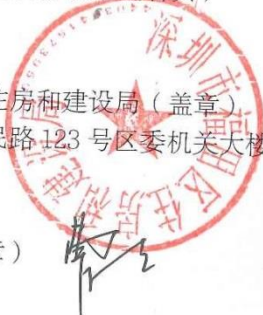 住房和建设局（盖章）
民路 123 号区委机关大楼
章）
深圳市福田区住房和建设局